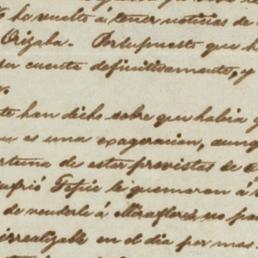 ho vuelto a tener noticias de
Orizaba. Por supuesto que h
su cuenta definitivamente, y
te han dicho sobre que habia g
es una exageracion, aunq
rtuna de estar provistos de
sufrió Tepic le quemaron á
de venderle á Miraflores, no po
irrealizable en el dia por mas